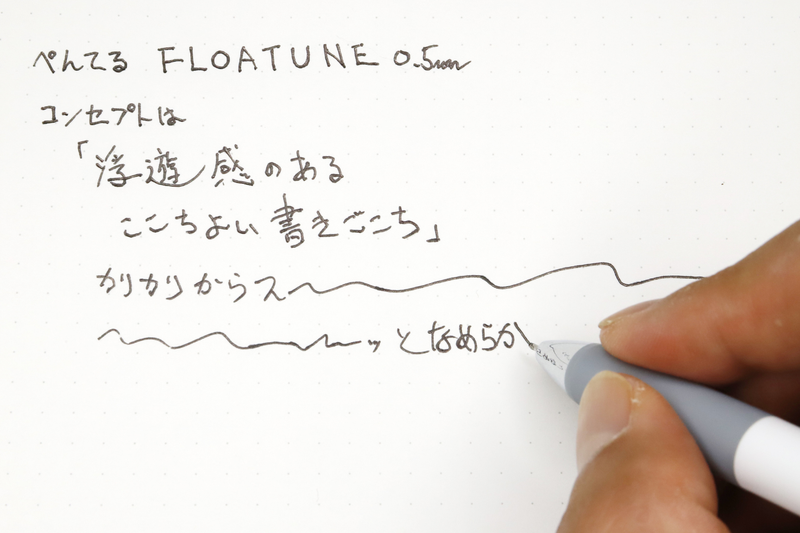 ぺんてる FLOATUNE 0.5mm
コンセプトは
「浮遊感のある
ここちよい書きごこち」
カリカリからスーーー
ーーーッとなめらか